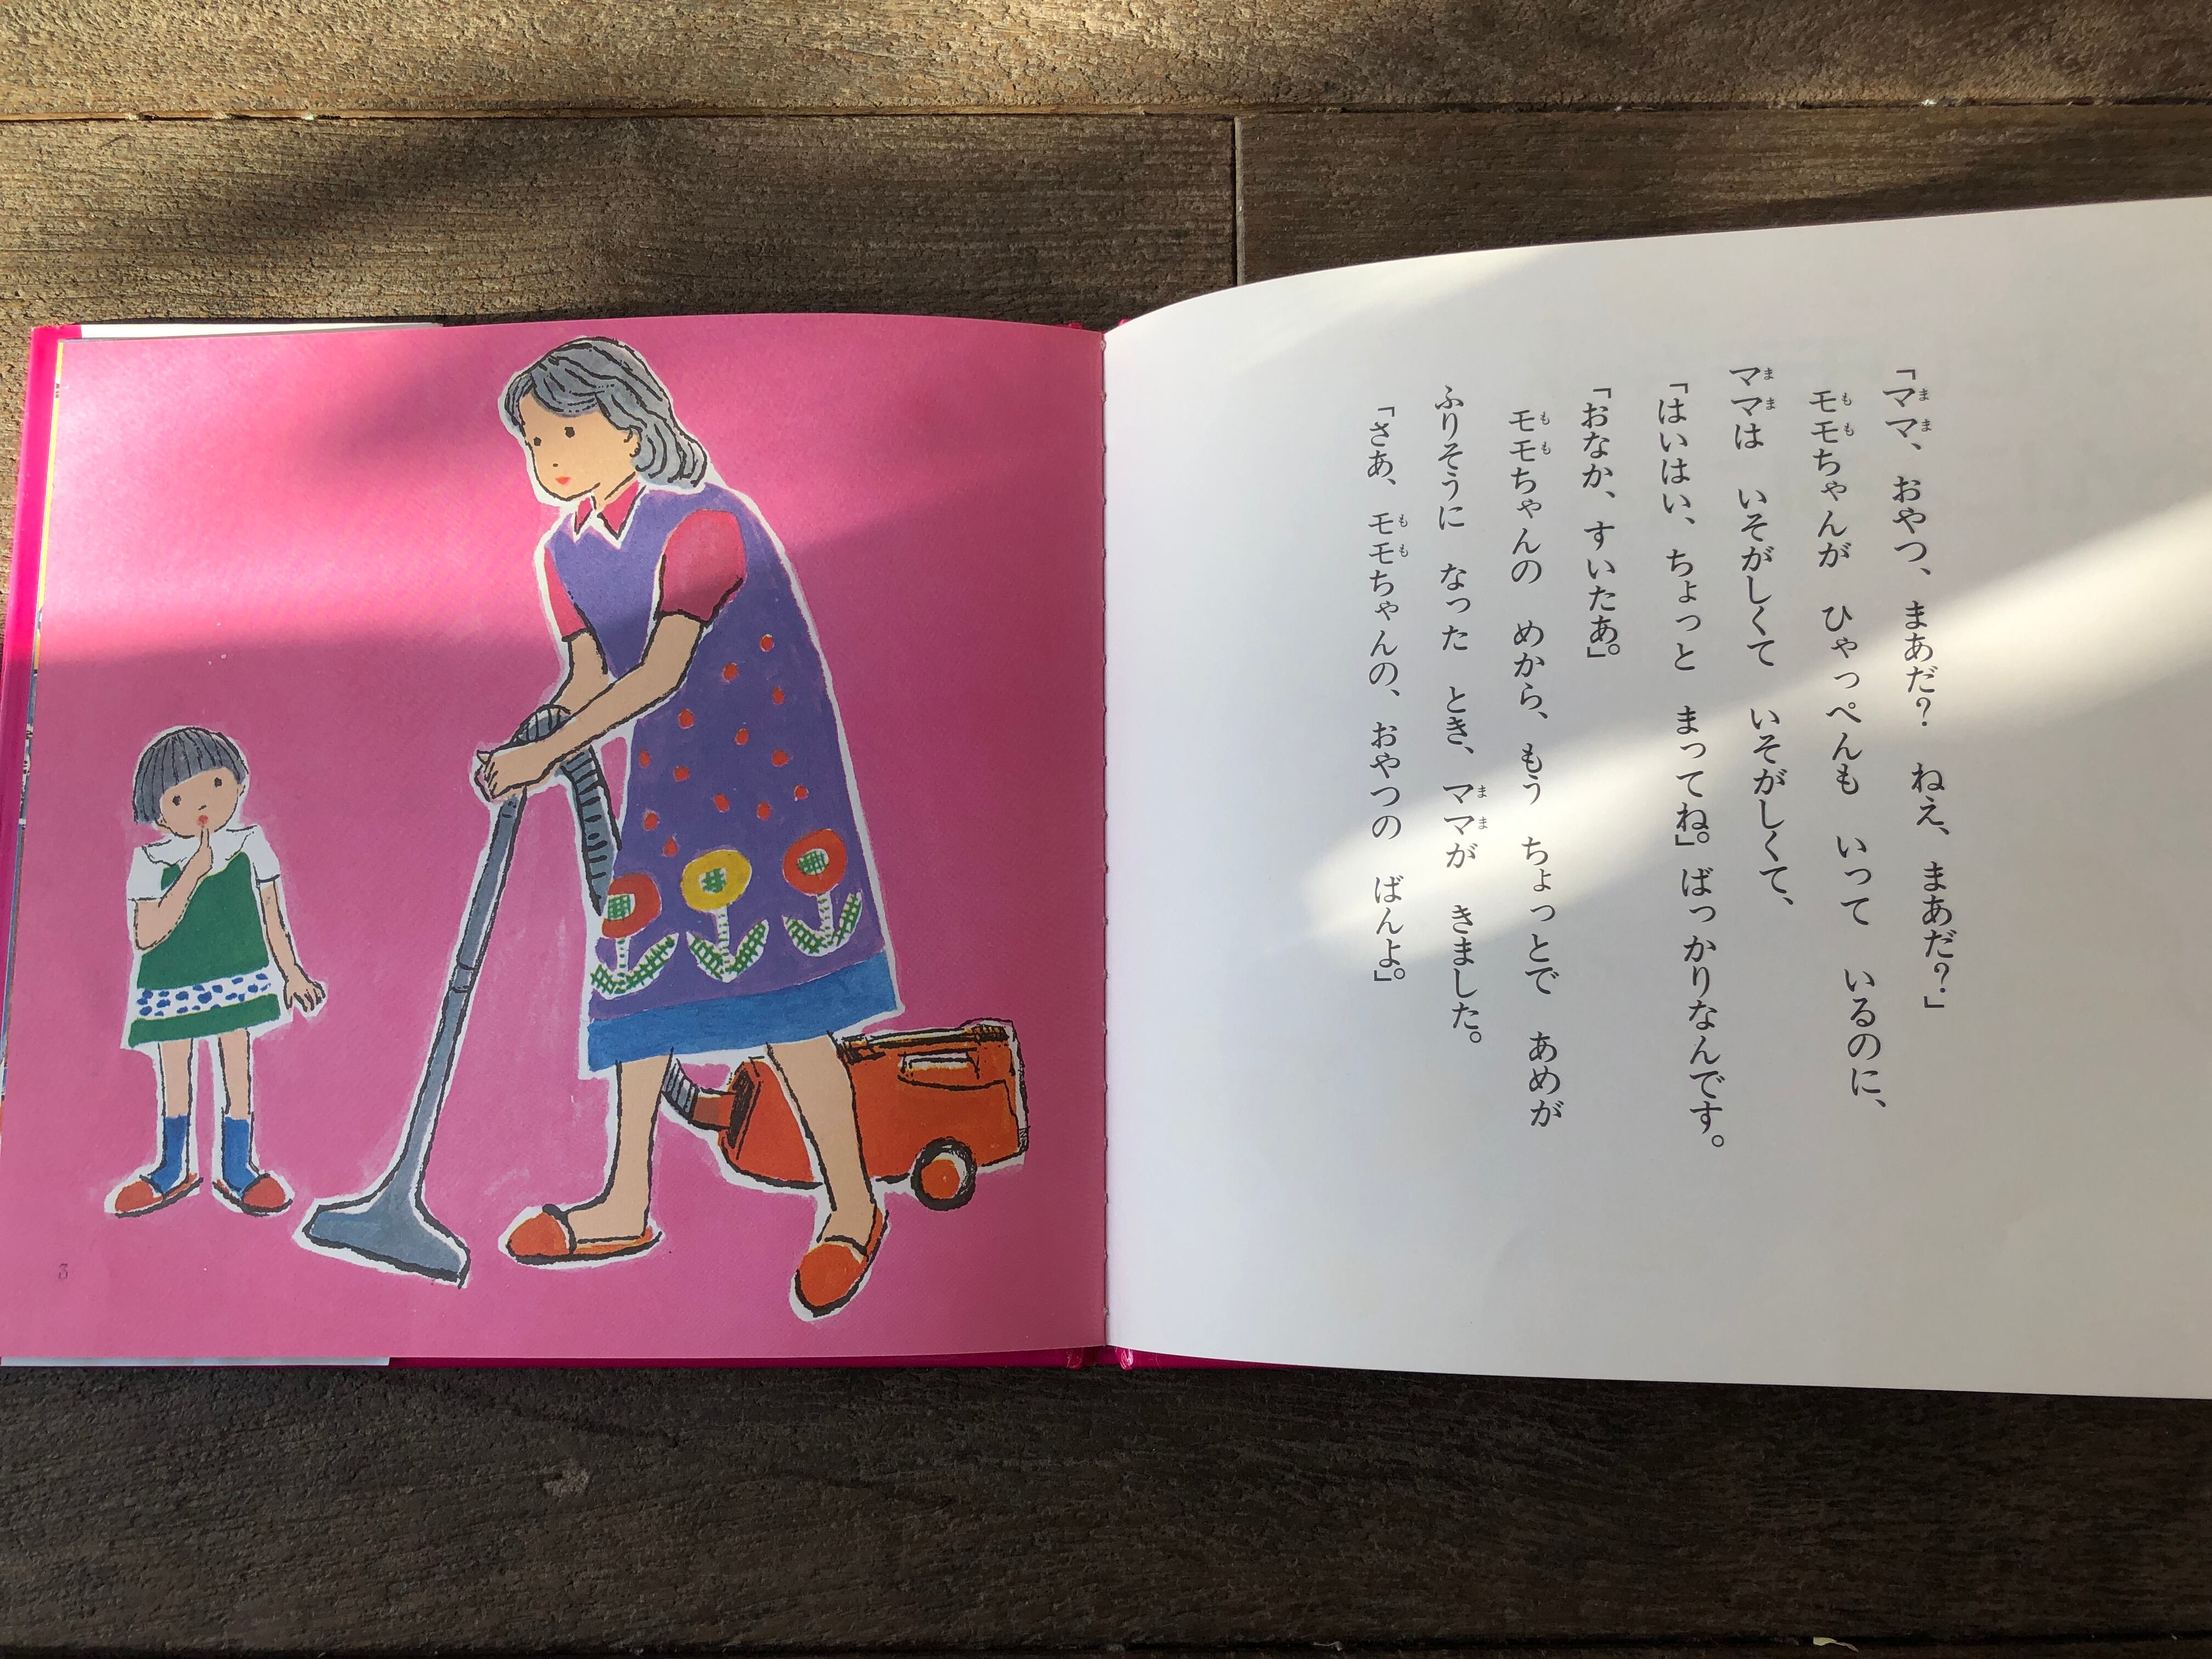 「ママ、おやつ、まあだ？　ねえ、まあだ？」
モモちゃんが　ひゃっぺんも　いって　いるのに、
ママは　いそがしくて　いそがしくて、
「はいはい、ちょっと　まってね」。ばっかりなんです。
「おなか、すいたあ。」
モモちゃんの　めから、もう　ちょっとで　あめが
ふりそうに　なった　とき、ママが　きました。
「さあ、モモちゃんの、おやつの　ばんよ。」
3